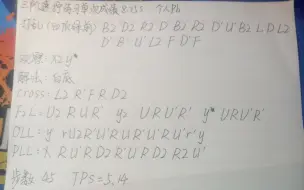 三阶速拧官方单次成绩 8.751 个人Pb
打乱(白顶绿前) B2 D2 R2 D B2 R2 B2 D' U' B2 L D L2
D' B U' L2 F D' F
观察: x2 y'
解法: 白底
Cross: L2 R' F R D2
F2L: U2 R U R' y2 U R U' R' y' U R U' R'
OLL: y r U2 R' U' R U R' U' R U' r' y
PLL: x R U' R D2 R' U R D2 R2 U'
步数 45 TPS=5.14